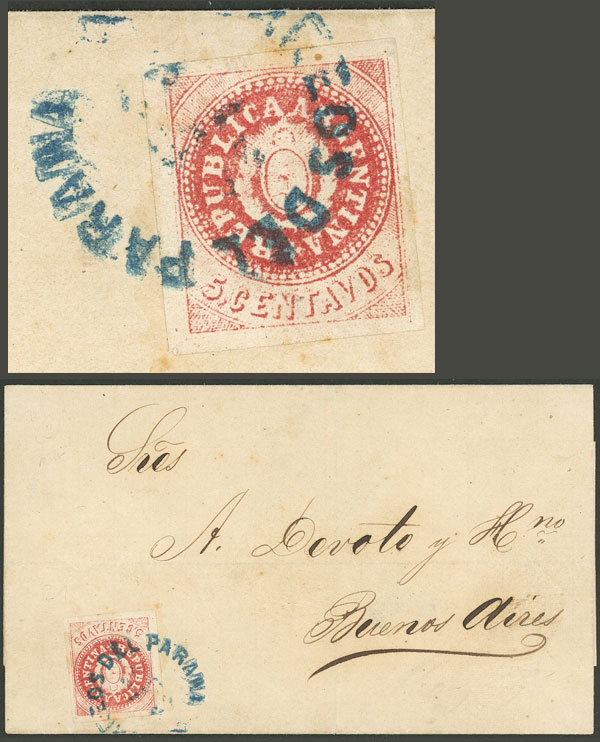 REPUBLICA ARGENTINA
5 CENTAVOS
OS DEL PARANA
Sres
A. Devoto y Hno
Buenos Aires
5 CENTAVOS
REPUBLICA ARGENTINA
OS DEL PARANA